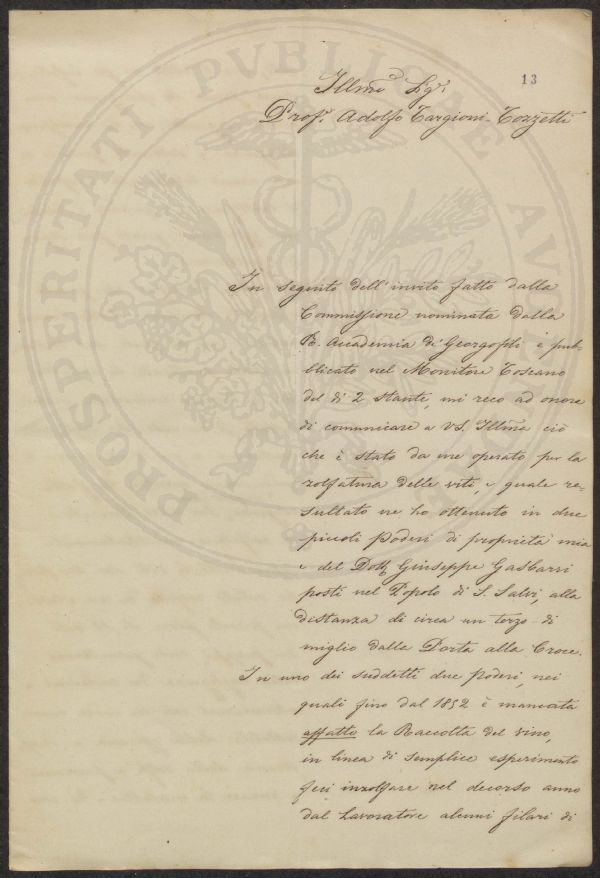 13
Illmo Sigr.
Profr. Adolfo Targioni Tozzetti
In seguito dell'invito fatto dalla
Commissione nominata dalla
R. Accademia di Georgofili e pub=
blicato nel Monitore Toscano
del dì 2 stante, mi reco ad onore
di comunicare a VS. Illma ciò
che è stato da me operato per la
zolfatura delle viti, e quale re=
sultato ne ho ottenuto in due
piccoli Poderi di proprietà mia
e del Dott. Giuseppe Gasbarri
posti nel Popolo di S. Salvi, alla
distanza di circa un terzo di
miglio dalla Porta alla Croce.
In uno dei suddetti due Poderi, nei
quali fino dal 1852 è mancata
affatto la Raccolta del vino,
in linea di semplice esperimento
feci inzolfare nel decorso anno
dal Lavoratore alcuni filari di
PROSPERITATI PVBLICAE AVGENDAE